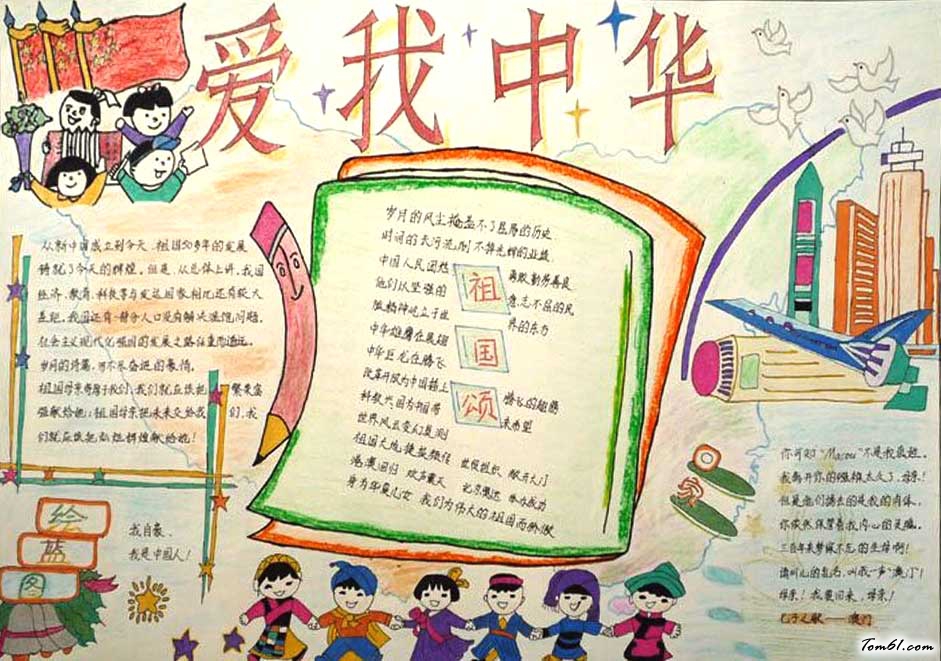 爱我中华
从新中国成立到今天，祖国50多年的发展
铸就了今天的辉煌。但是，从总体上讲，我国
经济、教育、科技等与发达国家相比还有较大
差距。我国还有一部分人口没有解决温饱问题，
社会主义现代化强国的发展之路任重而道远。
岁月的诗篇，写不尽奋进的豪情，
祖国母亲寄希于我们，我们就应该把繁荣富
强献给她；祖国母亲把未来交给我们，我
们就应该把灿烂辉煌献给她！
绘
蓝
图
我自豪、
我是中国人！
岁月的风尘掩盖不了悠久的历史
时间的长河流淌不掉光辉的业绩
中国人民固然 勇敢勤劳善良
他们以坚强的 意志不屈的民
族精神屹立于世 界的东方
中华雄鹰在展翅
中华巨龙在腾飞
改革开放为中国插上 腾飞的翅膀
科教兴国为祖国带 来希望
世界风云变幻莫测
祖国大地捷报频传 世贸组织 敞开大门
港澳回归 欢声震天 北京奥运 举办成功
身为华夏儿女 我们为伟大的祖国而骄傲
祖
国
颂
你可知“Macau”不是我真姓，
我离开你的襁褓太久了，母亲！
但是他们掳去的是我的肉体，
你依然保管着我内心的灵魂。
三百年来梦寐不忘的生母啊！
请叫儿的乳名，叫我一声“澳门”！
母亲！我要回来，母亲！
七子之歌——澳门
Tom61.com